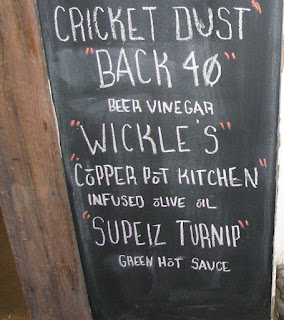 CRICKET DUST
"BACK 40"
BEER VINEGAR
"WICKLE'S"
"COPPER POT KITCHEN"
INFUSED OLIVE OIL
"SUPEIZ TURNIP"
GREEN HOT SAUCE